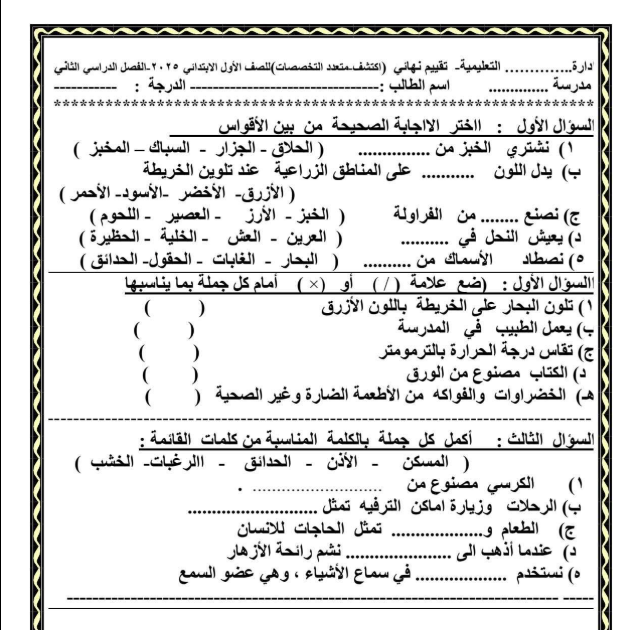 دارة.............. التعليمية- تقييم نهائي (اكتشف-متعدد التخصصات)للصف الأول الابتدائي ٢٠٢٥-الفصل الدراسي الثاني
مدرسة .............. اسم الطالب :------------------------------ الدرجة : -----------
************************************************************
السؤال الأول : ااختر الااجابة الصحيحة من بين الأقواس
١) نشتري الخبز من ................ ( الحلاق - الجزار - السباك – المخبز )
ب) يدل اللون ........... على المناطق الزراعية عند تلوين الخريطة
( الأزرق- الأخضر -الأسود- الأحمر )
ج) نصنع ........ من الفراولة ( الخبز - الأرز - العصير - اللحوم )
د) يعيش النحل في .......... ( العرين - العش - الخلية - الحظيرة )
٥) نصطاد الأسماك من .......... ( البحار - الغابات - الحقول- الحدائق )
االسؤال الأول : (ضع علامة ( / ) أو ( × ) أمام كل جملة بما يناسبها
١) تلون البحار على الخريطة باللون الأزرق ( )
ب) يعمل الطبيب في المدرسة ( )
ج) تقاس درجة الحرارة بالترمومتر ( )
د) الكتاب مصنوع من الورق ( )
هـ) الخضراوات والفواكه من الأطعمة الضارة وغير الصحية ( )
السؤال الثالث : أكمل كل جملة بالكلمة المناسبة من كلمات القائمة :
( المسكن - الأذن - الحدائق - االرغبات- الخشب )
١) الكرسي مصنوع من .......................... .
ب) الرحلات وزيارة اماكن الترفيه تمثل ..........................
ج) الطعام و.................. تمثل الحاجات للانسان
د) عندما أذهب الى ..................... نشم رائحة الأزهار
٥) نستخدم .................. في سماع الأشياء ، وهي عضو السمع